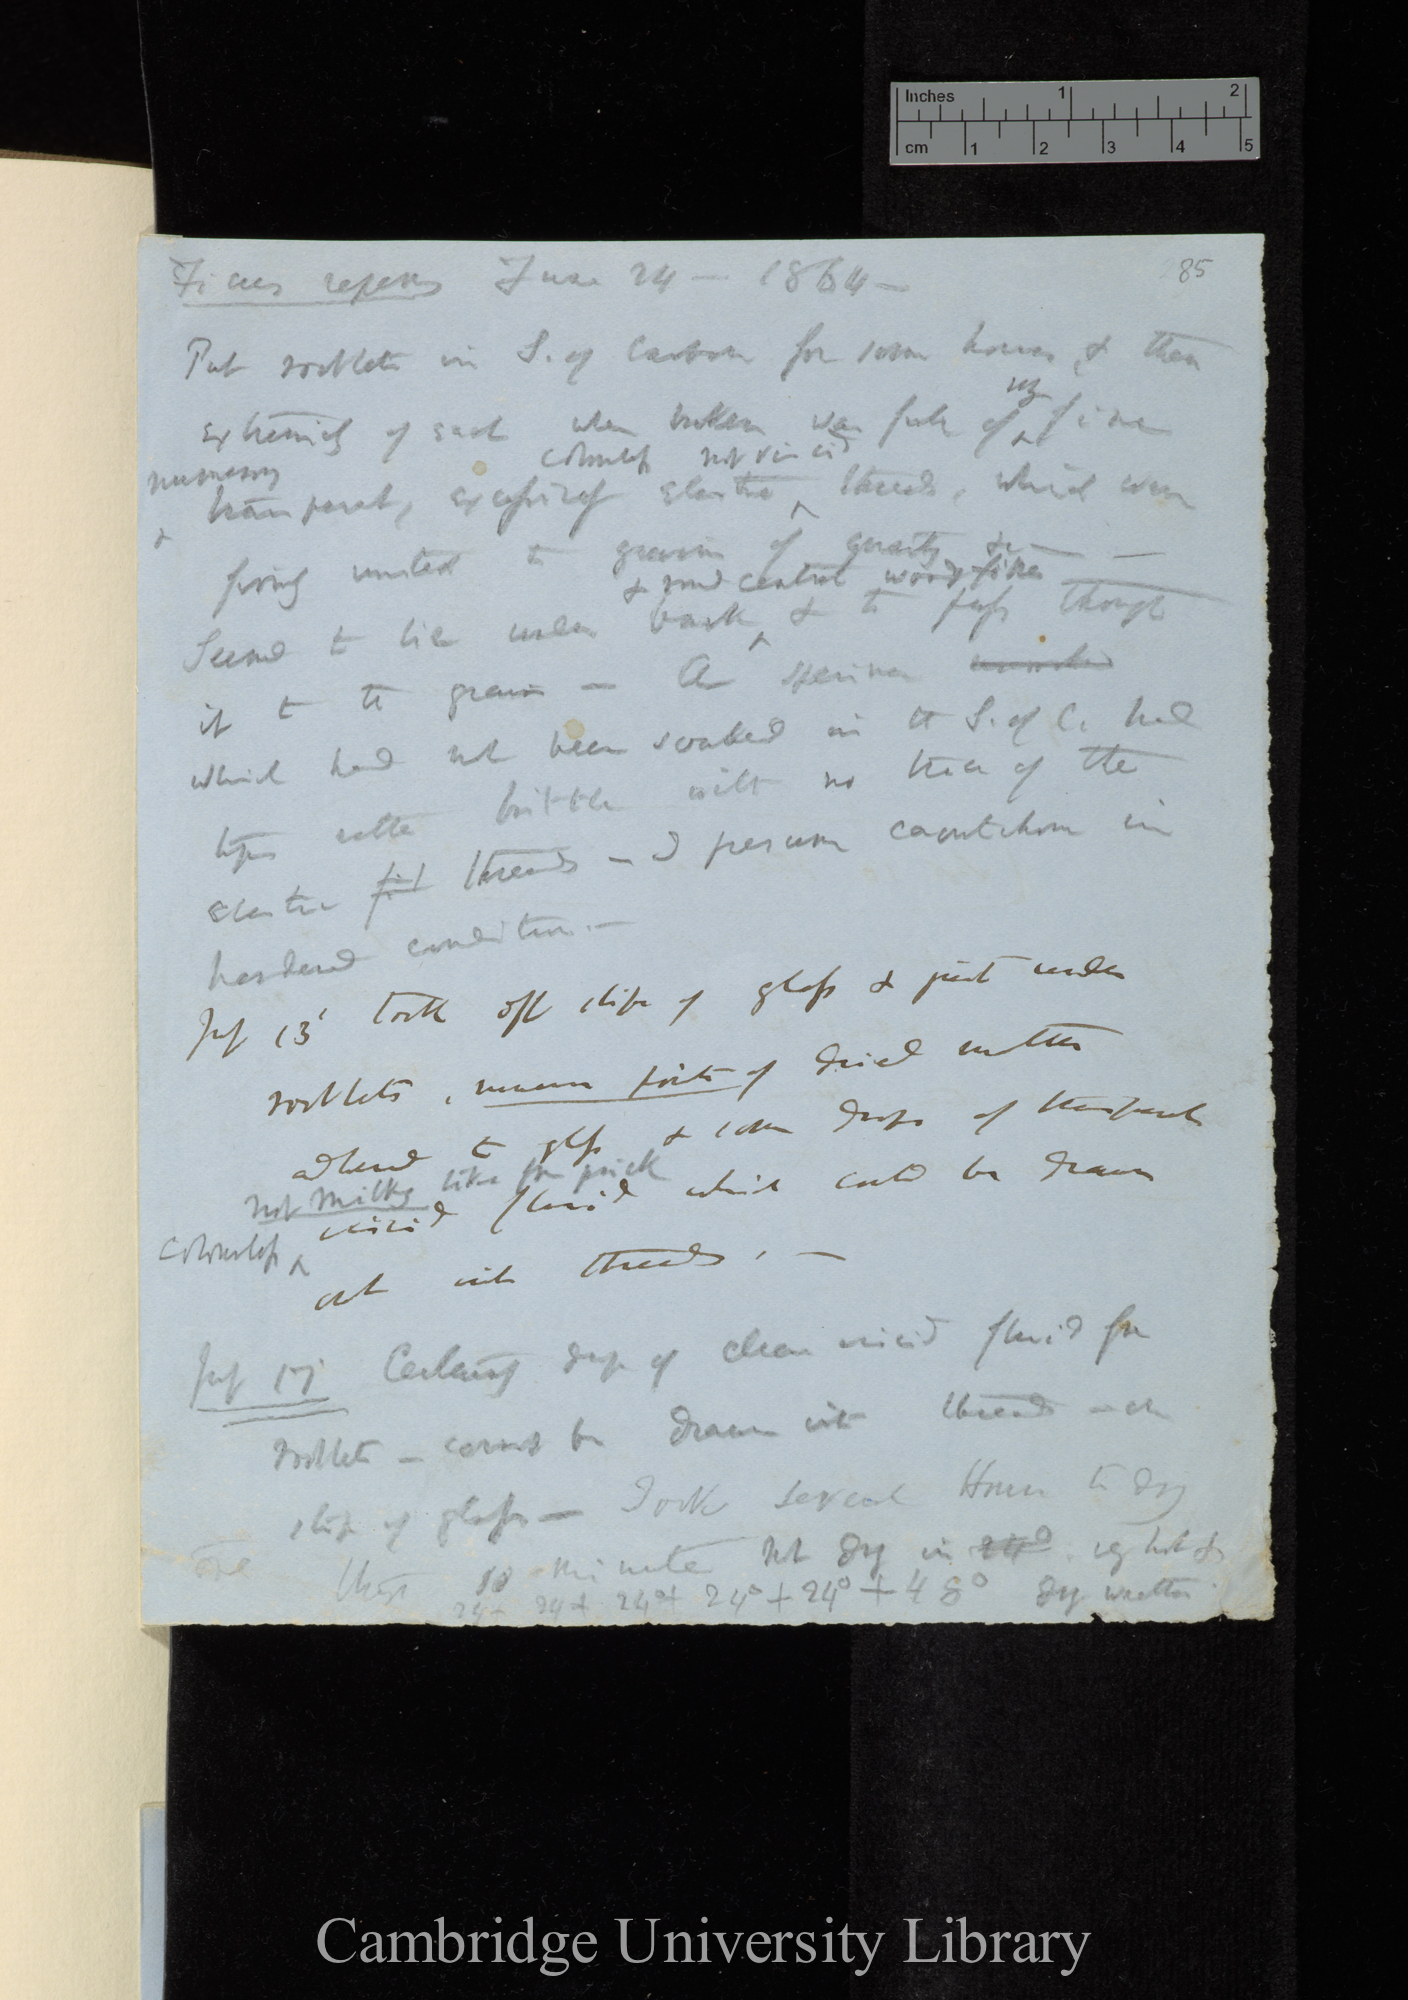 Inches 1 2
cm 1 2 3 4 5
85
Ficus repens June 24 — 1864 —
Put rootlets in S. of Carbon for some hours & then
extremity of each when broken was full of fine
colourless not viscid
numerous
& transparent, excessively elastic threads, which were
firmly united to grains of &c — —
& round central woody fibre
Seemed to lie under bark & to pass through
it to the grains — A specimen
which had not been soaked in the S. of C. had
brittle with no trace of the
elastic threads — I presume caoutchouc in
hardened condition. —
July 13 Took off slips of glass & just under
rootlets, points of dried matter
adhered to glass & some drops of transparent
not milky like from prick
viscid fluid which could be drawn
colourless
out into threads. —
July 17 Certainly drop of clear viscid fluid from
rootlets — cannot be drawn into threads — on
slip of glass — Took several Hours to dry
minutes not dry in 24°
24 + 24 + 24° + 24° + 24° + 48° dry
Cambridge University Library